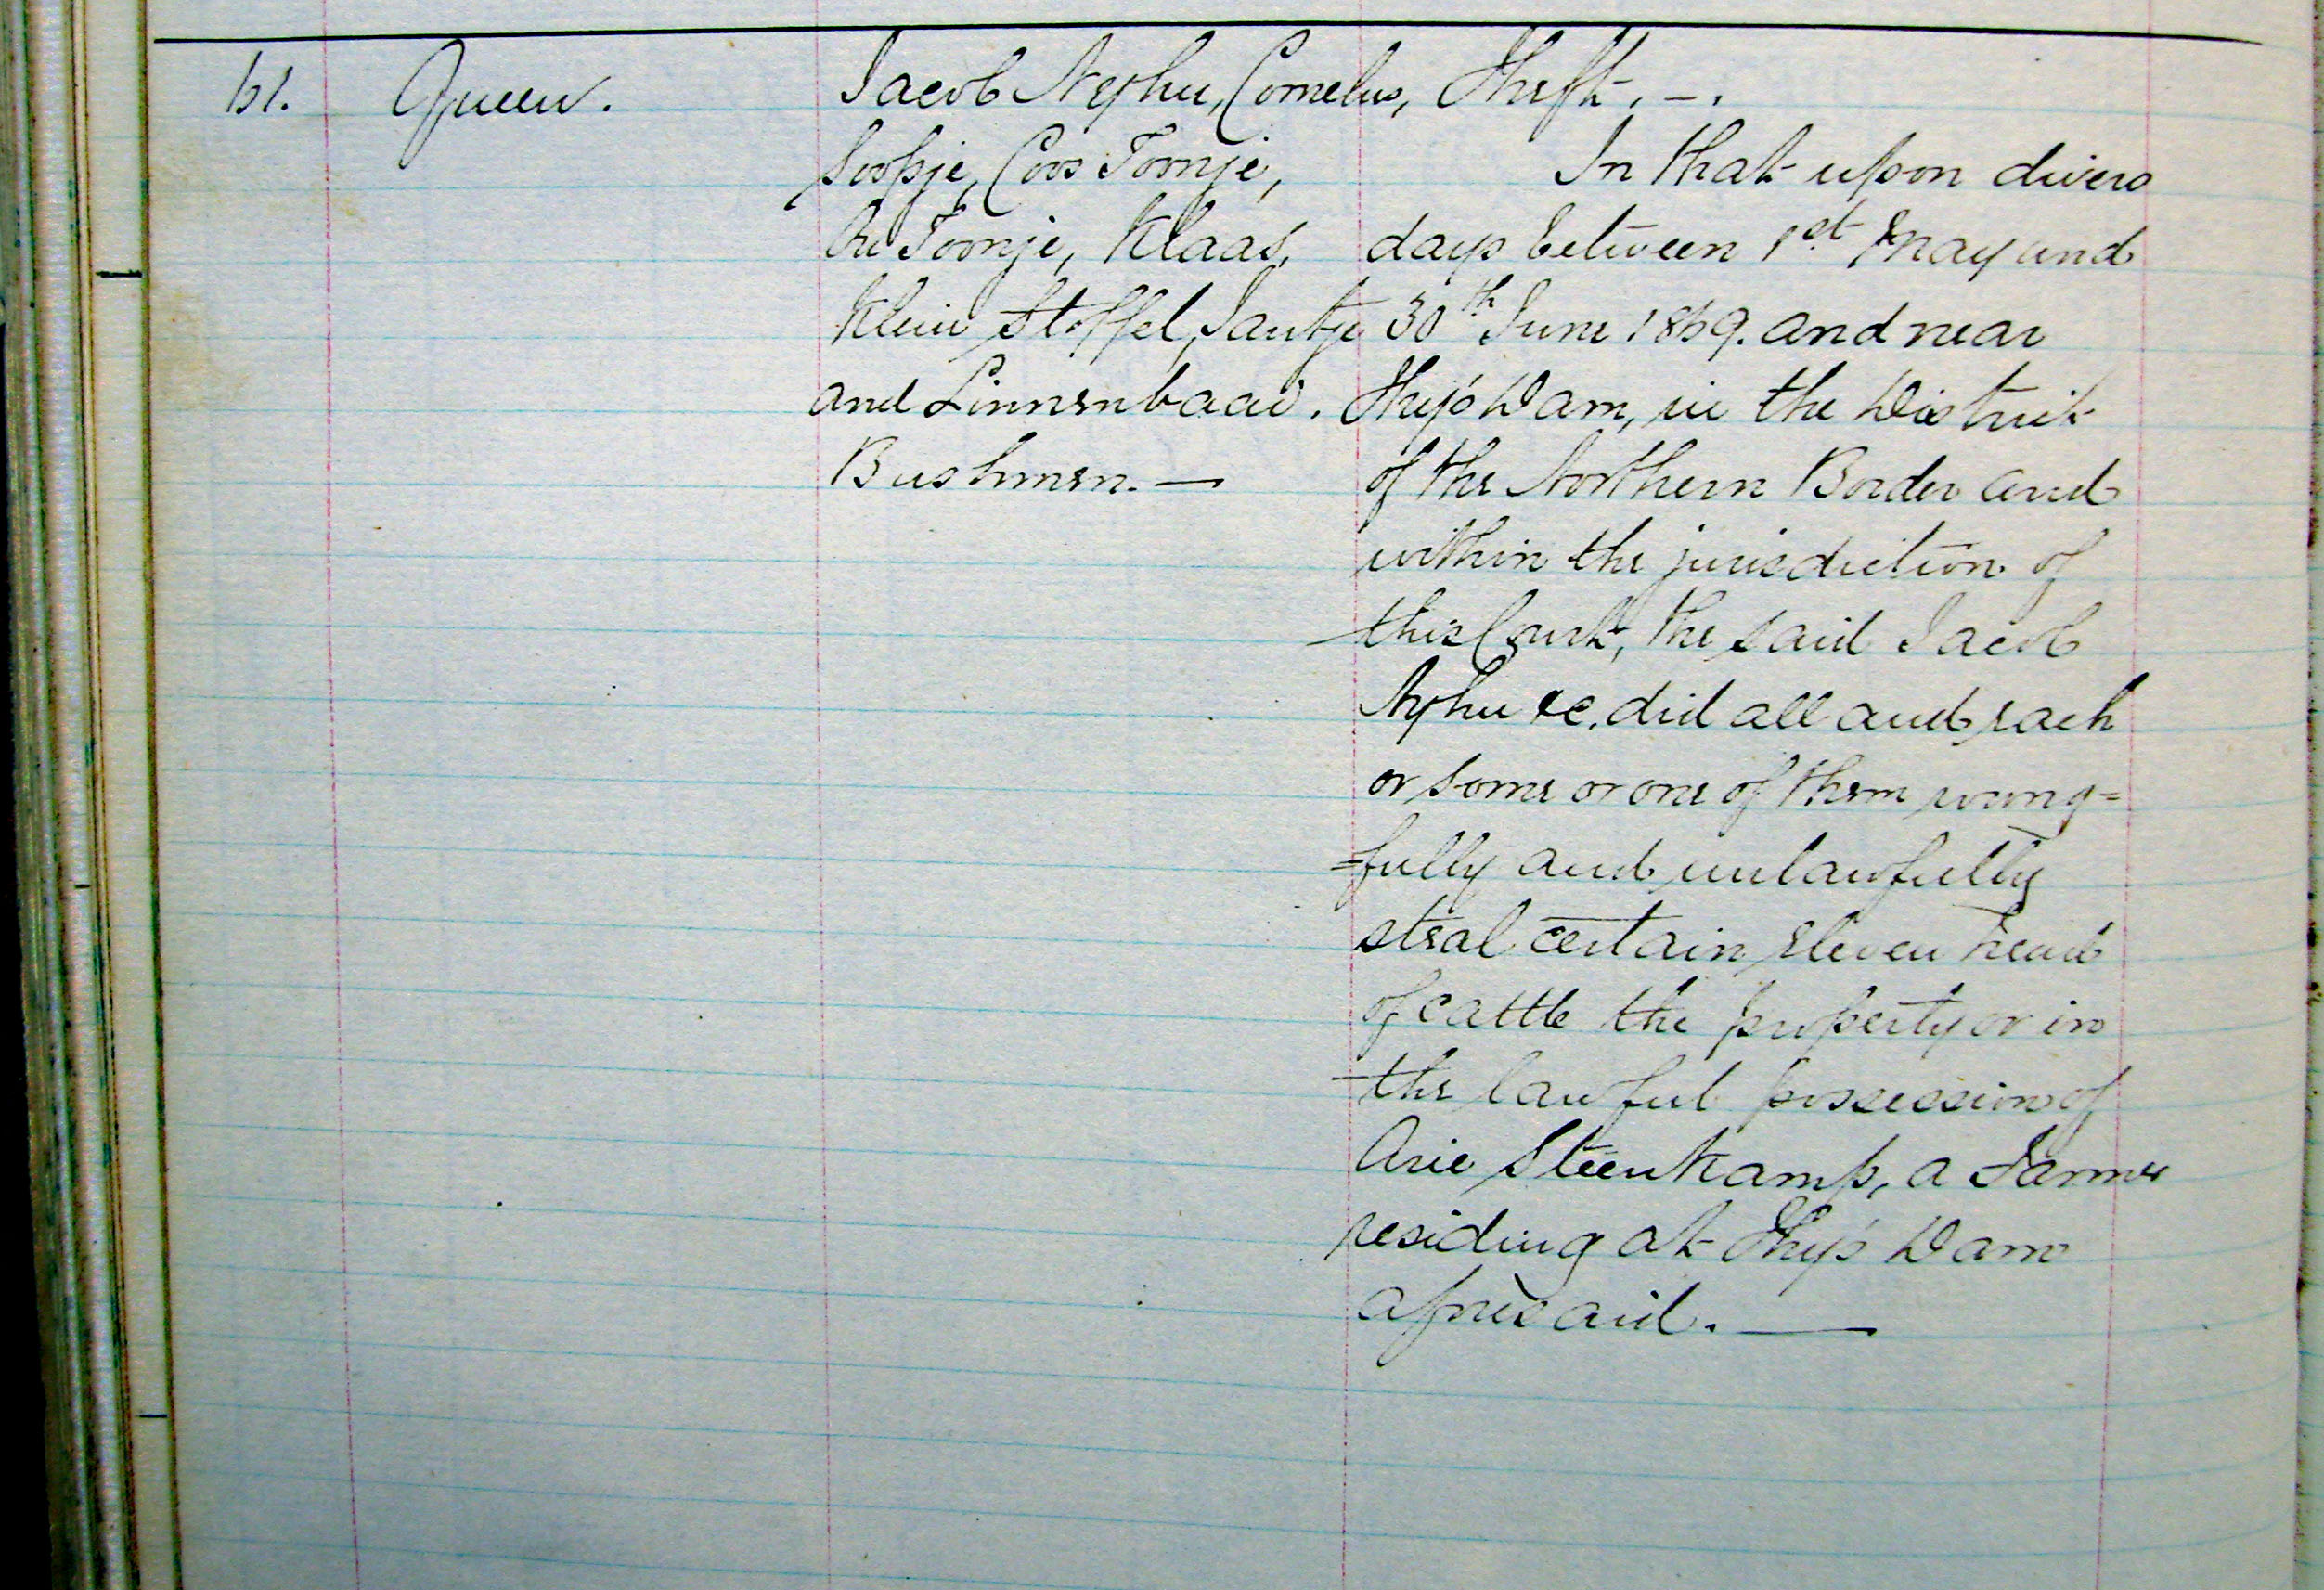 61.
Queen.
Jacob Nephu, Cornelus,
Soopje, Coos Toonje,
Toonje, Klaas,
Klein Stoffel, Jantje
and Linnenbaai.
Bushmen. —
Theft. —.
In that upon divers
days between 1st May and
30th June 1869. and near
Thys Dam, in the District
of the Northern Border and
within the jurisdiction of
this Court, the said Jacob
Nephu &c. did all and each
or some or one of them wrong=
=fully and unlawfully
steal certain eleven head
of cattle the property or in
the lawful possession of
Arie Steenkamp, a Farmer
residing at Thys Dam
aforesaid. —